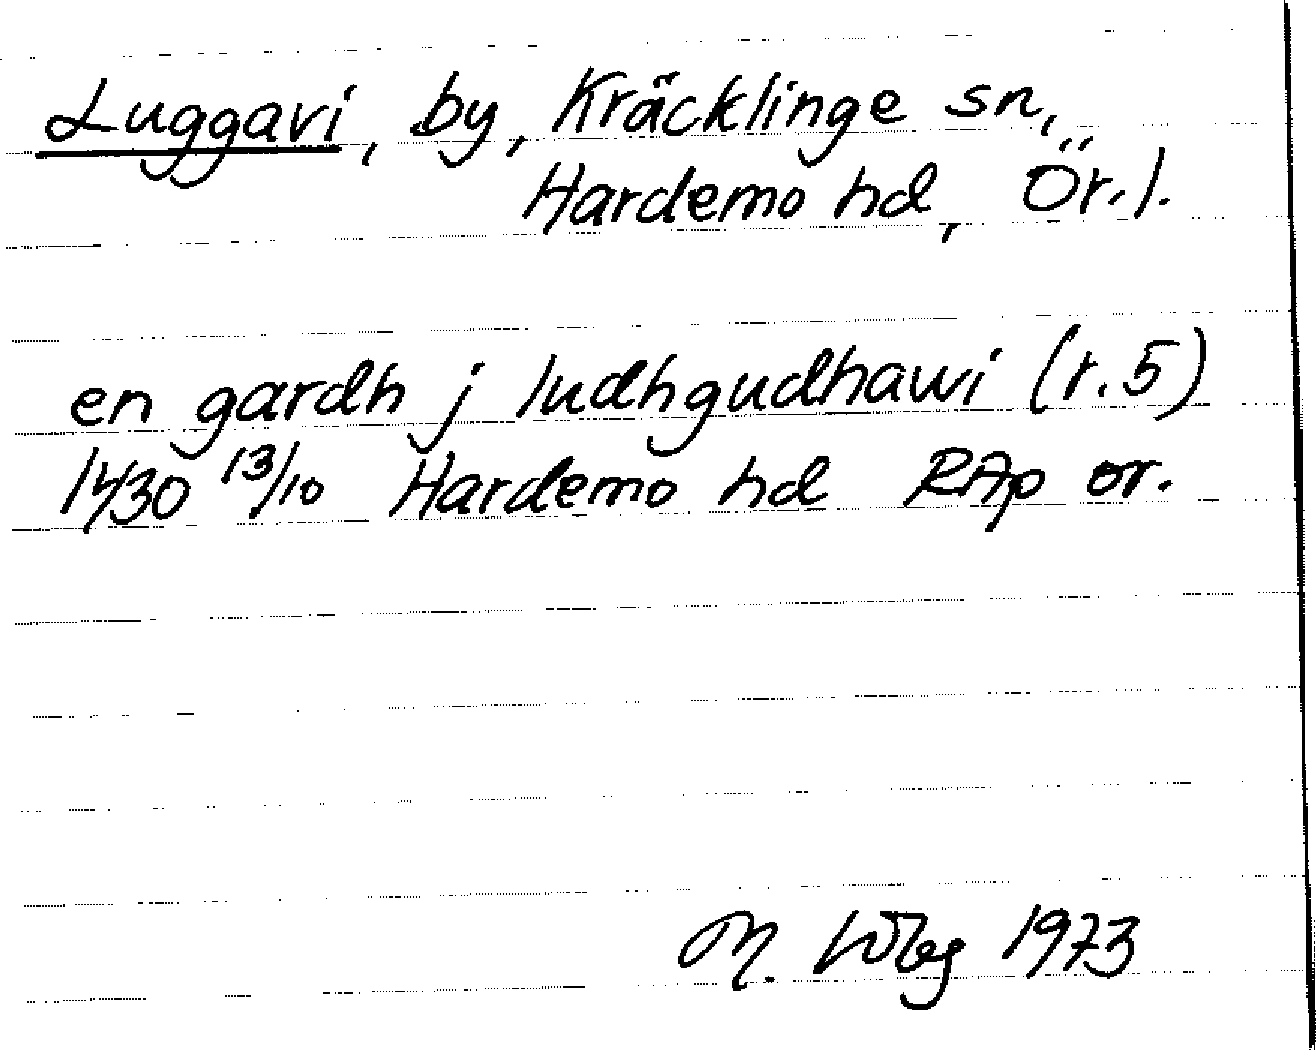 Luggavi, by, Kräcklinge sn,
Hardemo hd, Ör.l.
en gardh j ludhgudhawi (r.5)
1430 13/10 Hardemo hd RAp or.
M. Wbg 1973